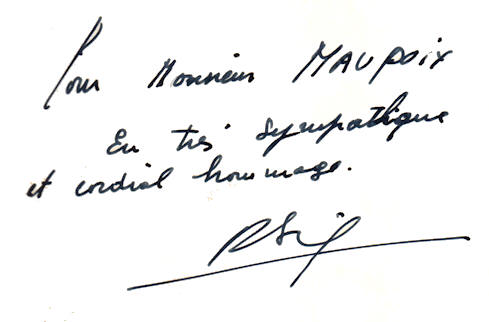 Pour Monsieur MAUPOIX
En très sympathique
et cordial hommage.